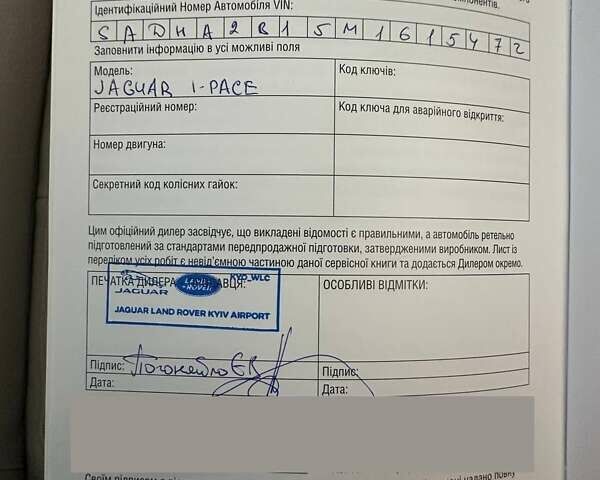 Ідентифікаційний Номер Автомобіля VIN:
SADHA2B15M1615472
Заповнити інформацію в усі можливі поля
Модель:
JAGUAR I-PACE
Код ключів:
Реєстраційний номер:
Код ключа для аварійного відкриття:
Номер двигуна:
Секретний код колісних гайок:
Цим офіційний дилер засвідчує, що викладені відомості є правильними, а автомобіль ретельно
підготовлений за стандартами передпродажної підготовки, затвердженими виробником. Лист із
переліком усіх робіт є невід'ємною частиною даної сервісної книги та додається Дилером окремо.
ПЕЧАТКА ДИЛЕРА
KYD_WLC
JAGUAR
LAND ROVER
JAGUAR LAND ROVER KYIV AIRPORT
ОСОБЛИВІ ВІДМІТКИ:
Підпис:
Підпис:
Дата:
Дата: